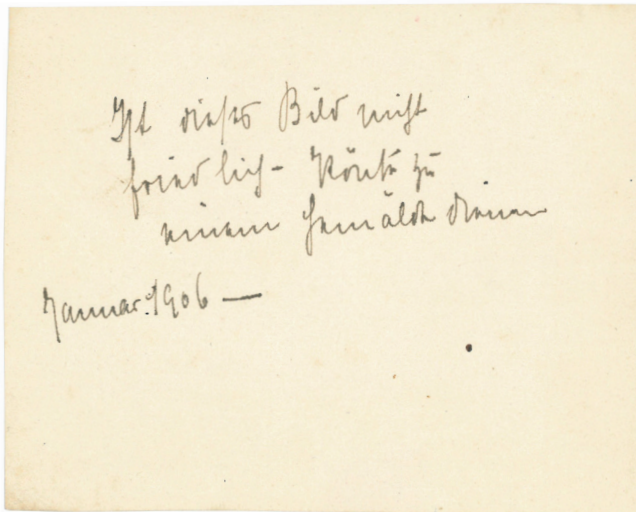 Ist dieses Bild nicht
friedlich – Könnte zu
einem Gemälde dienen
Januar. 1906 —